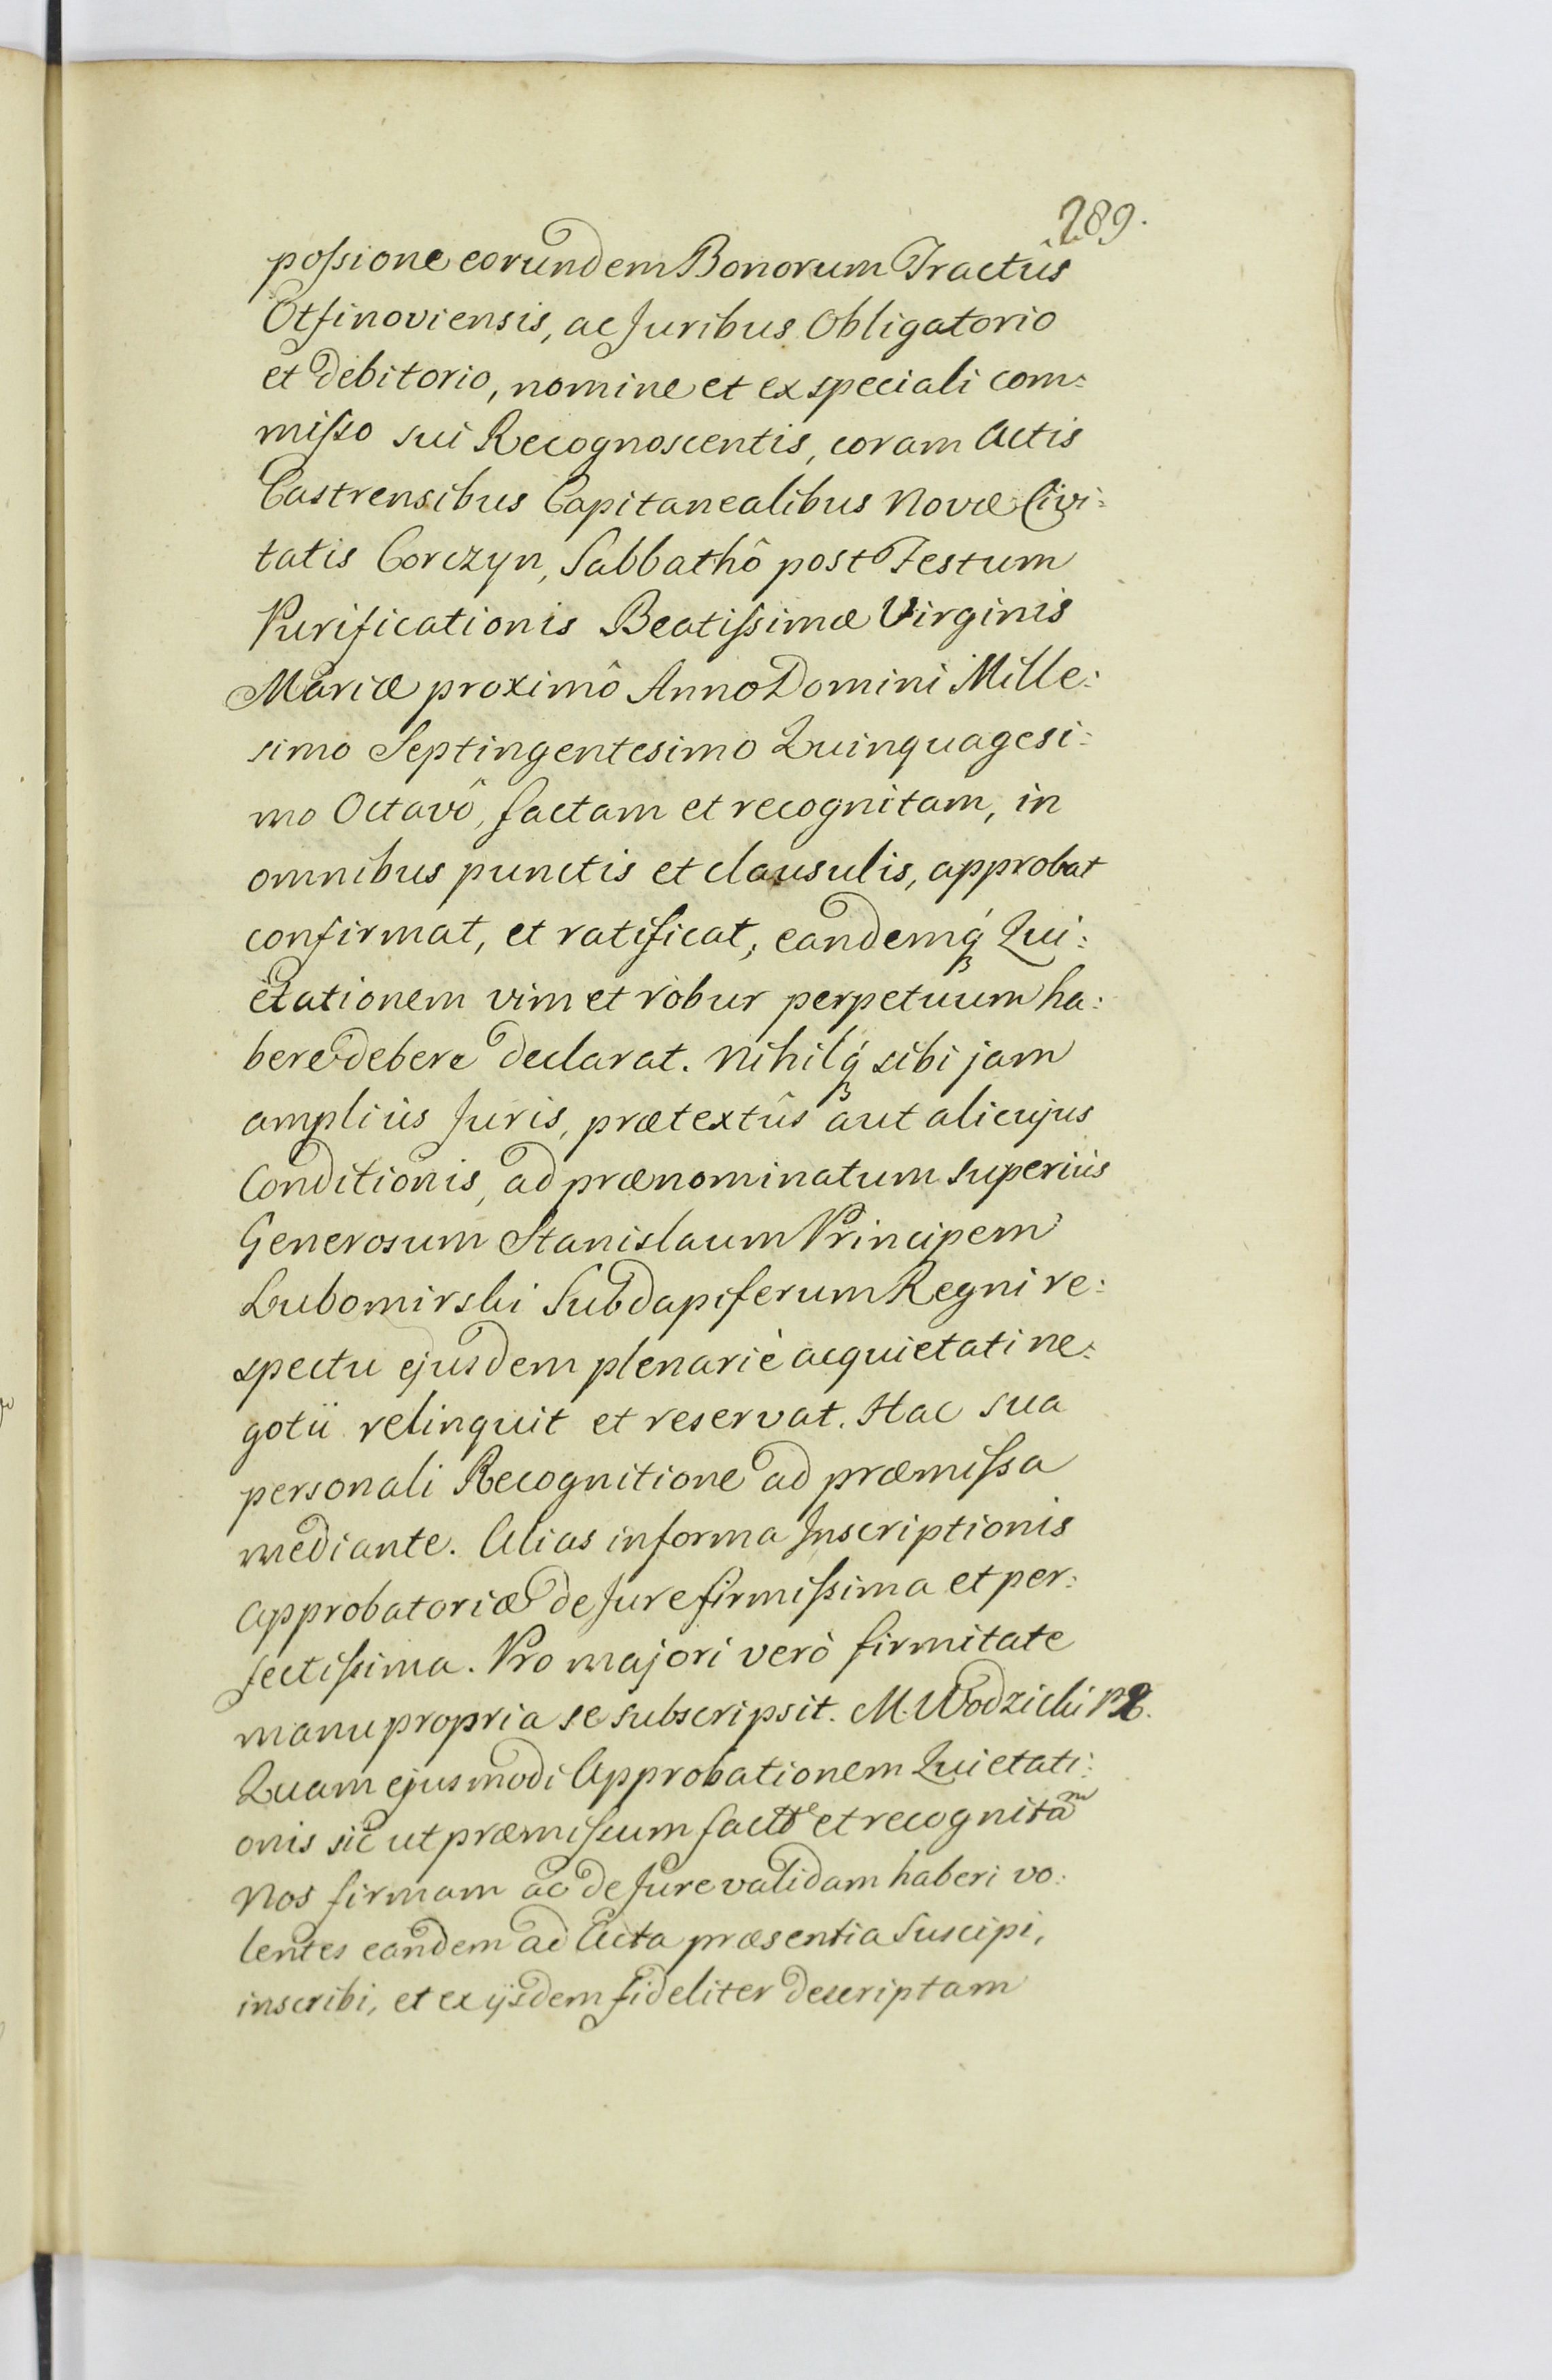 289.
poſsione eorundem Bonorum Tractûs
Otfinoviensis, ac Juribus Obligatorio
et debitorio, nomine et ex speciali com:
miſso sui Recognoscentis, coram Actis
Castrensibus Capitanealibus Novæ Civi:
tatis Corczyn, Sabbathô post Festum
Purificationis Beatiſsimæ Virginis
Mariæ proximô Anno Domini Mille:
simo Septingentesimo Quinquagesi:
mo Octavô, factam et recognitam, in
omnibus punctis et clausulis, approbat
confirmat, et ratificat, eandemq́ Qui:
etationem vim et robur perpetuum ha:
bere debere declarat. Nihilq́ sibi jam
ampliùs Juris, prætextûs aut alicujus
Conditionis, ad prænominatum superiùs
Generosum Stanislaum Principem
Lubomirski Subdapiferum Regni re:
spectu ejusdem plenariè acquietati ne:
gotii relinquit et reservat. Hac sua
personali Recognitione ad præmiſsa
mediante. Alias in forma Inscriptionis
Approbatoriæ de Jure firmiſsima et per:
fectiſsima. Pro majori verò firmitate
manu propria se subscripsit. M. Wodzicki
Quam ejusmodi Approbationem Quietati:
onis sic ut præmiſsum et recognitam
Nos firmam ac de Jure validam haberi vo:
lentes eandem ad Acta præsentia suscipi,
inscribi, et ex ijsdem fideliter descriptam